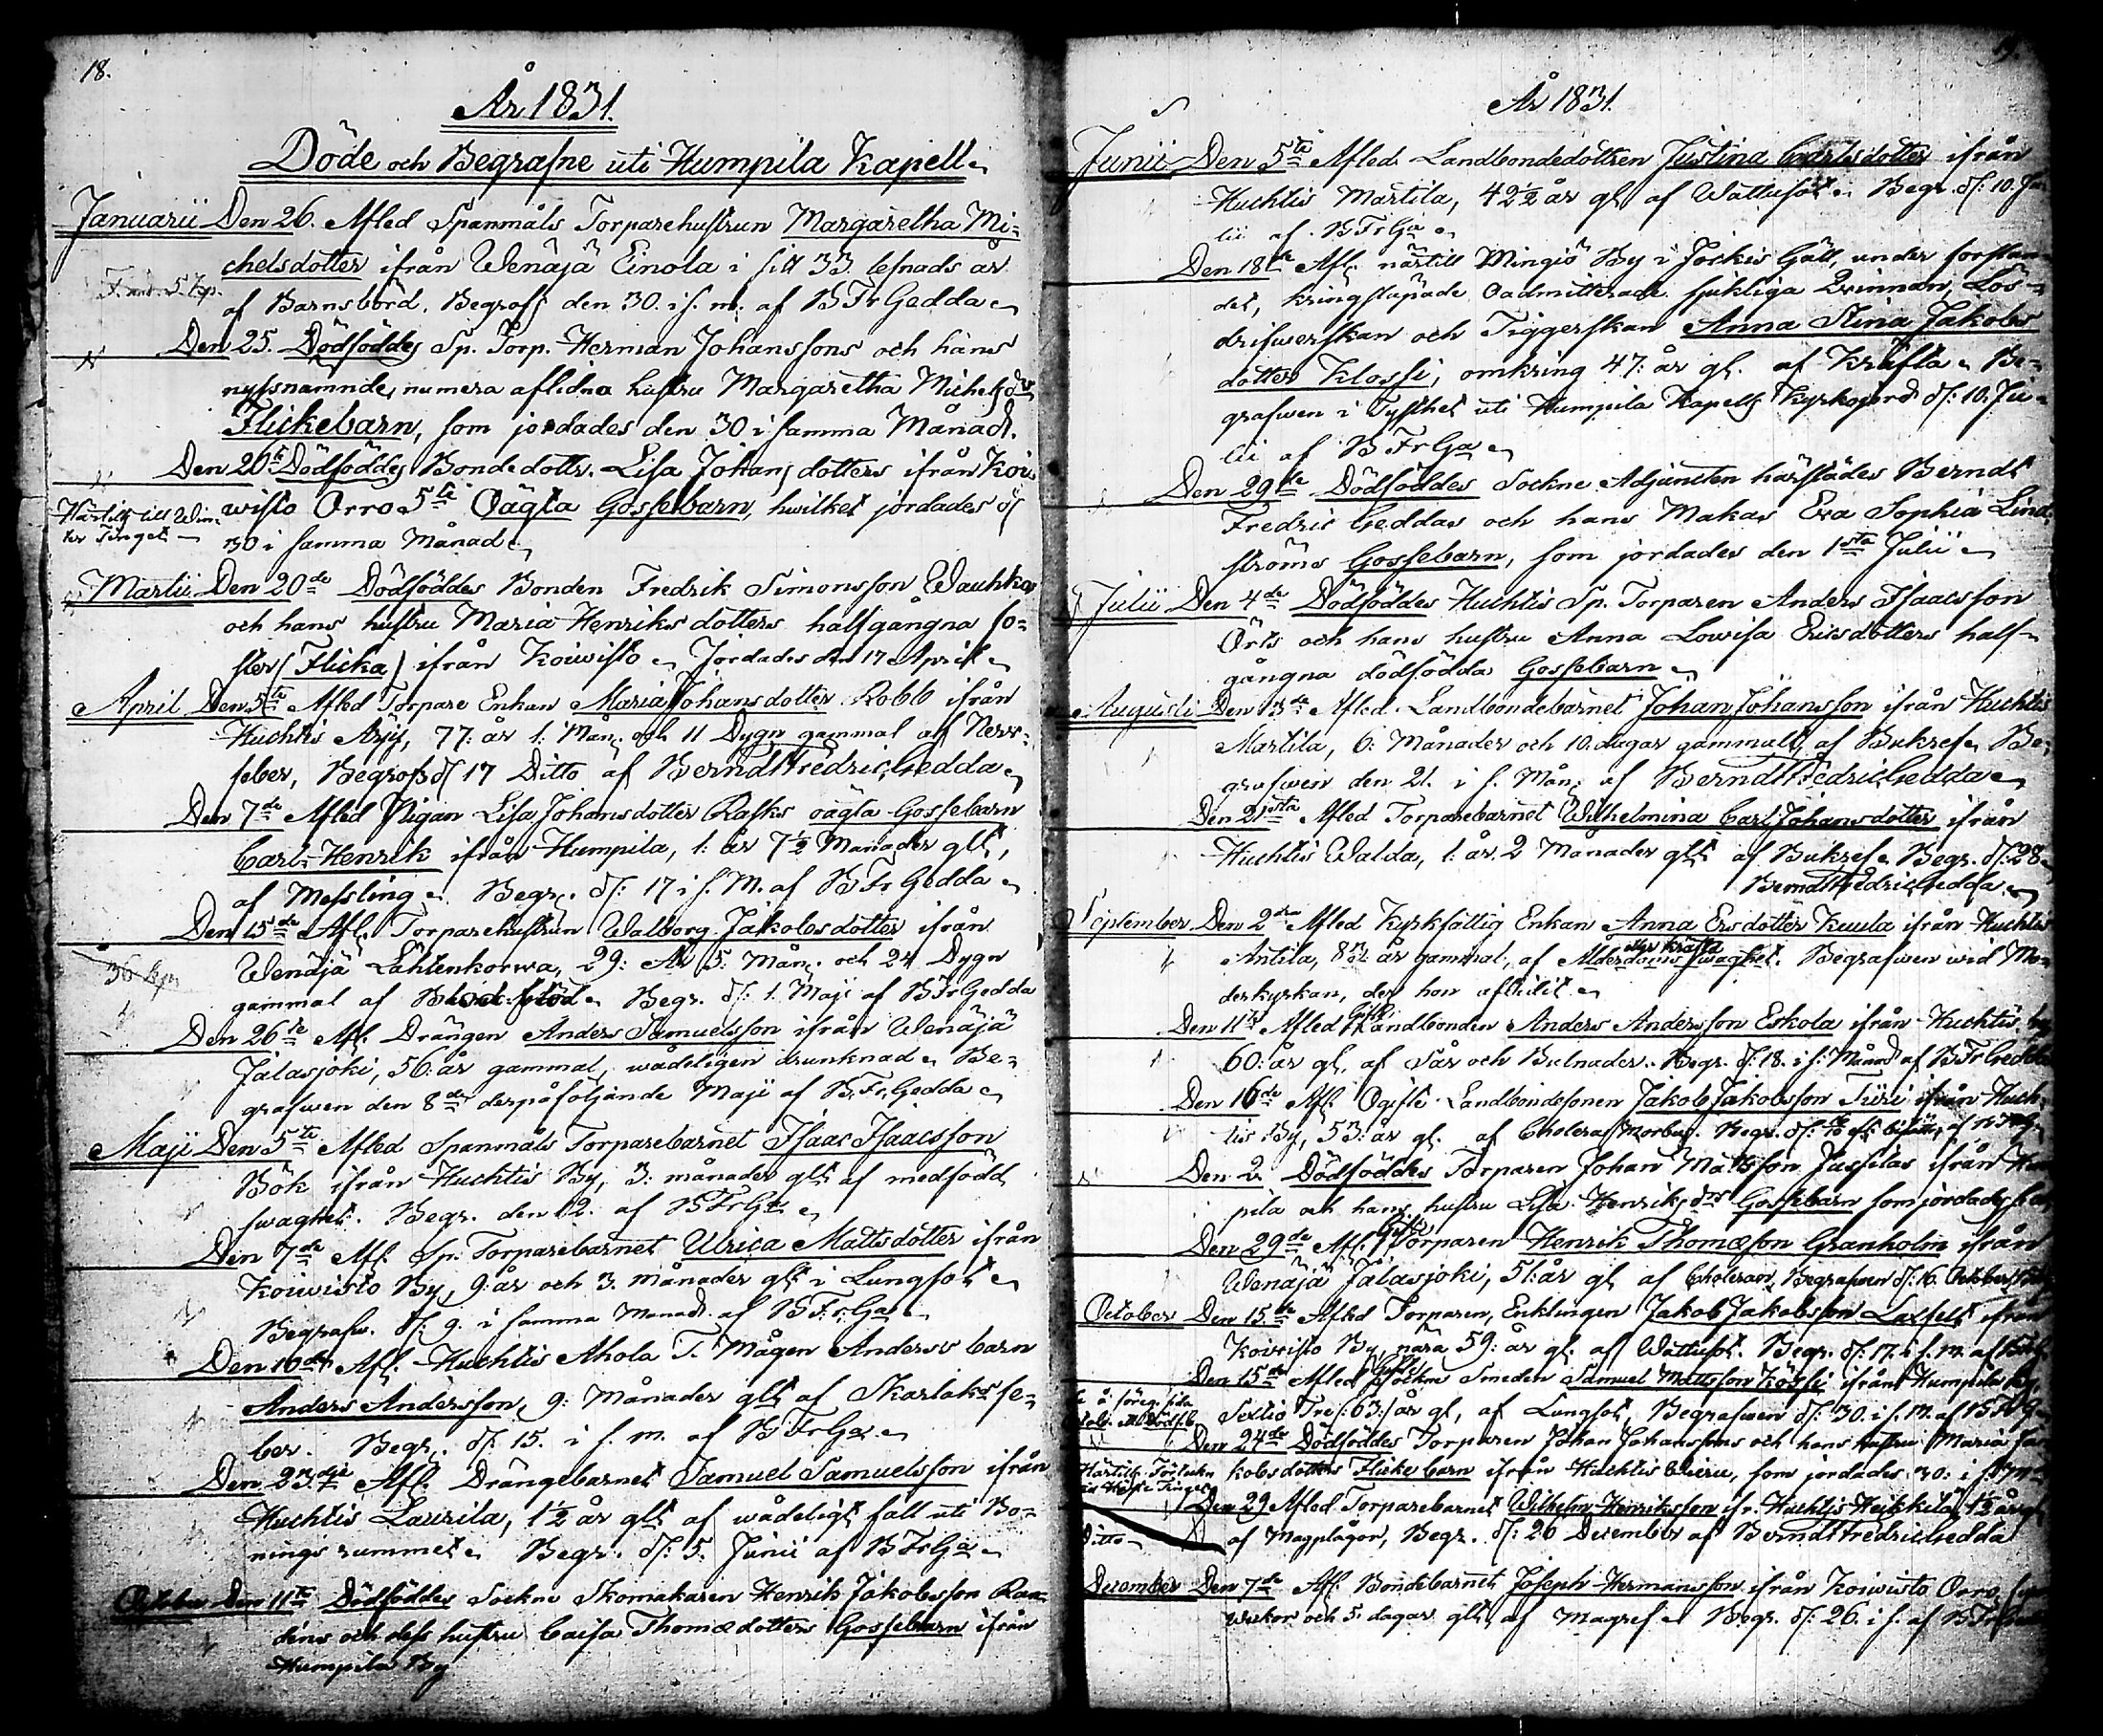 18.
År 1831.
Döde och Begrafne uti Humpila Kapell.
Januarii Den 26. Afled Spanmåls Torparehustrun Margaretha Mi-
chelsdotter ifrån Wenäjä Einola i sitt 33 lefnads år
af Barnsbörd. Begrofs den 30. i s. m. af B Fr Gedda
Den 25. Dödföddes Sp. Torp. Herman Johanssons och hans
nyssnamnde, numera aflidna hustru Margaretha Michelsdrs
Flickebarn, som jordades den 30 i samma Månad.
Den 26te Dödföddes Bondedottr. Lisa Johansdotters ifrån Koi-
wisto Orro 5te Oägta Gossebarn, hwilket jordades d:
Härtill till Win-
ter Tinget
30 i samma Månad
Martii Den 20de Dödföddes Bonden Fredrik Simonsson Wauhkas
och hans hustru Maria Henriksdotters halfgångna fo-
ster (Flicka) ifrån Koiwisto Jordades den 17 April
April Den 5te Afled Torpare Enkan Maria Johansdotter Robb ifrån
Huchtis Äyy, 77: år 1: Mån. och 11 Dygn gammal af Nerv-
feber, Begrofs d: 17 Ditto af Berndt Fredric Gedda
Den 7de Afled Pigan Lisa Johansdotter Rasks oägta Gossebarn
Carl Henrik ifrån Humpila, 1: år 7½ Månader glt,
af Messling. Begr. d: 17 i s. M. af B Fr Gedda
Den 15de Afl. Torparehustrun Walborg Jakobsdotter ifrån
36 kp
Wenäjä Lähtenkorwa, 29: År 5: Mån. och 24 Dygn
gammal af Begr. d: 1. Maji af B Fr Gedda
Den 26te Afl. Drängen Anders Samuelsson ifrån Wenäjä
Jalasjoki, 56: år gammal, wådeligen drunknad. Be-
grafwen den 8de derpåföljande Maji af B. Fr. Gedda
Maji Den 5te Afled Spanmåls Torparebarnet Isaac Isaacsson
Bök ifrån Huchtis By, 3: månader glt af medfödd
swaghet. Begr. den 12. af B Fr Ga
Den 7de Afl. Sp. Torparebarnet Ulrica Mattsdotter ifrån
Koiwisto By, 9: år och 3. månader glt i Lungsot
Begrafw. d: 9. i samma Månad. af B Fr Ga
Den 10de Afl. Huchtis Ahola T. Mågen Anders's barn
Anders Andersson, 9: Månader glt af Skarlaksfe-
ber. Begr. d: 15. i s. m. af B Fr Ga
Den 23dje Afl. Drängebarnet Samuel Samuelsson ifrån
Huchtis Laurila, 1½ år glt af wådeligt fall uti Bo-
nings rummet. Begr. d: 5. Junii af B Fr Ga
October Den 11te Dödföddes Sockne Skomakaren Henrik Jakobsson Ran-
dens och dess hustru Caisa Thomædotters Gossebarn ifrån
Humpila By
År 1831.
Junii Den 5te Afled Landbondedottren Justina Carlsdotter ifrån
Huchtis Martila, 42½ år gl af Wattusot. Begr. d: 10. Ju-
lii af B Fr Ga
Den 18de Afl. närtill Mingiö By i Jockis Gäll, under förstån-
det, kringstapade Oadmitterade sjukliga Qwinnan, Lös-
drifwerskan och Tiggerskan Anna Stina Jakobs
dotter Klossi, omkring 47: år gl. af Kräfta. Be-
grafwen i Tysthet uti Humpila Kapells Kyrkogård d: 10. Ju-
lii af B Fr Ga
Den 29de Dödföddes Sockne Adjuncten härstädes Berndt
Fredric Geddas och hans Makas Eva Sophia Lind-
ströms Gossebarn, som jordades den 1sta Julii
Julii Den 4de Dödföddes Huchtis Sp. Torparen Anders Isaacsson
Örts och hans hustru Anna Lowisa Ericsdotters half-
gångna dödfödda Gossebarn
Augusti Den 13de Afled Landbondebarnet Johan Johansson ifrån Huchtis
Martila, 6: Månader och 10. dagar gammalt, af Bukref. Be-
grafwen den 21. i s. Mån. af Berndt Fredric Gedda
Den 21sta Afled Torparebarnet Wilhelmina Carl Johansdotter ifrån
Huchtis Walda, 1: år. 2 Månader glt af Bukref. Begr. d: 28.
Berndt Fredric Gedda
September Den 2dra Afled Kyrkfattig Enkan Anna Ersdotter Kuula ifrån Huchtis
Antila, 83: år gammal, af Ålderdoms swaghet. Begrafwen wid Mo-
derkyrkan, der hon aflidit
Den 11te Afled Gifte Landbonden Anders Andersson Eskola ifrån Huchtis by
60: år gl, af Sår och Bulnader. Begr. d: 18. i s. Månad af B Fr Gedda
Den 16de Afl. Ogifte Landbondesonen Jakob Jakobsson Türi ifrån Huch-
tis By, 53: år gl. af Cholera Morbus. Begr. d:
Den 2 Dödföddes Torparen Johan Mattsson Jussilas ifrån Hum-
pila och hans hustru Lisa Henriksdrs Gossebarn som jordades
Den 29de Afl. Gifte Torparen Henrik Thomæson Granholm ifrån
Wenäjä Jalasjoki, 51: år gl af Choleran, Begrafwen d: 16. October
October Den 15de Afled Torparen, Enklingen Jakob Jakobsson Laxfelt ifrån
Koiwisto By, nära 59: år gl. af Wattusot. Begr. d: 17. i s. m. af
Den 15de Afled Gifte Sockne Smeden Samuel Mattsson Kössi ifrån Humpila by
Sextio Tre (: 63:) år gl, af Lungsot, Begrafwen d: 30. i s. m. af B Fr G
Den 24de Dödföddes Torparen Johan Johanssons och hans hustru Maria Ja-
kobsdotters Flickebarn ifrån Huchtis, som jordades 30: i s. m.
Den 29 Afled Torparebarnet Wilhelm Henriksson ifr. Huchtis Heikkilä, 1½ år gl
Ditto
af Magplågor, Begr. d: 26 December af Berndt Fredric Gedda
December Den 7de Afl. Bondebarnet Joseph Hermansson ifrån Koiwisto Orro,
weckor och 5. dagar glt, af Magref. Begr. d: 26. i s. af B Fr